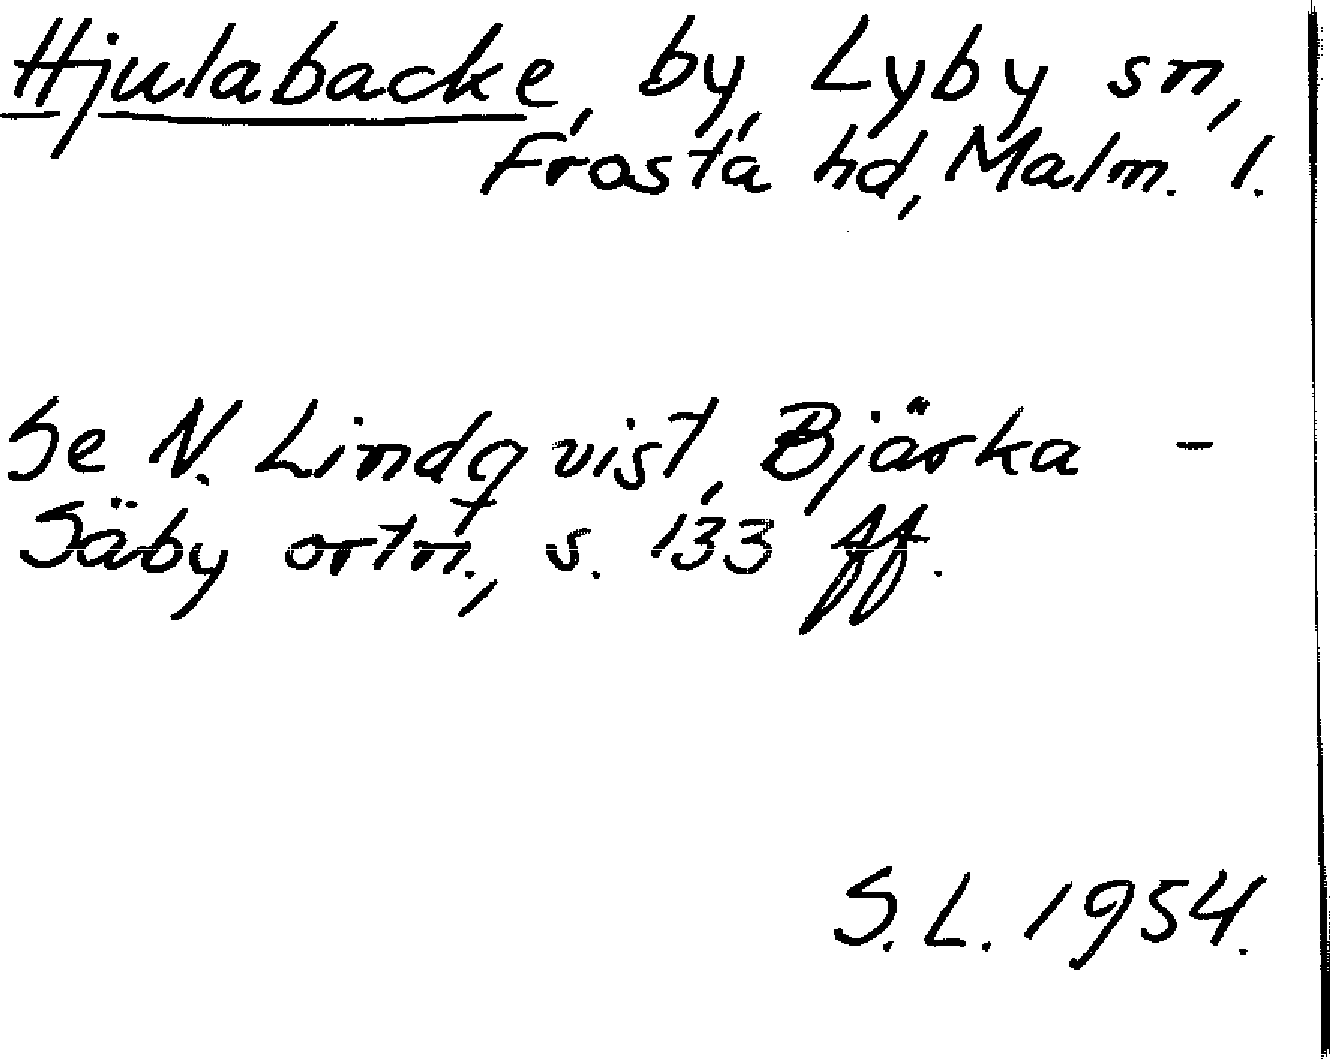 Hjulabacke, by, Lyby sn,
Frosta hd, Malm. l.
Se N. Lindqvist, Bjärka -
Säby ortn., s. 133 ff.
S. L. 1954.